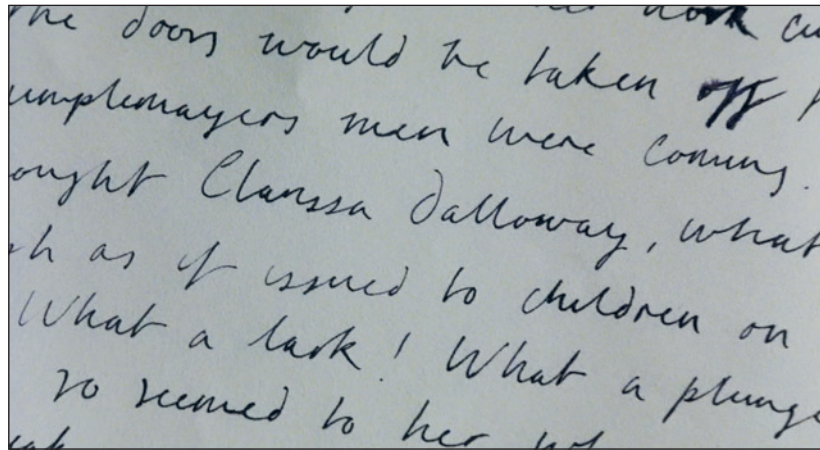 The doors would be taken off
umplemayers men were coming.
ought Clarissa Dalloway, what
as if issued to children on
What a lark! What a plunge
so seemed to her